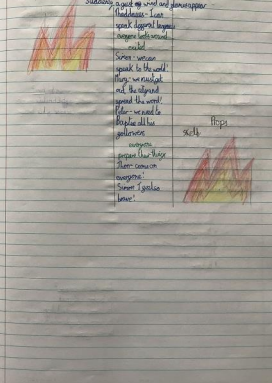 Suddenly, a gust of wind and flames appear
Thaddeus - I can
speak different languages
everyone looks around
Simon - we can
speak to the world!
Mary - we must get
out the city and
spread the word!
Peter - we need to
Baptise all his
followers
everyone
prepare their things
come on
everyone!
Simon I feel so
brave!
Props